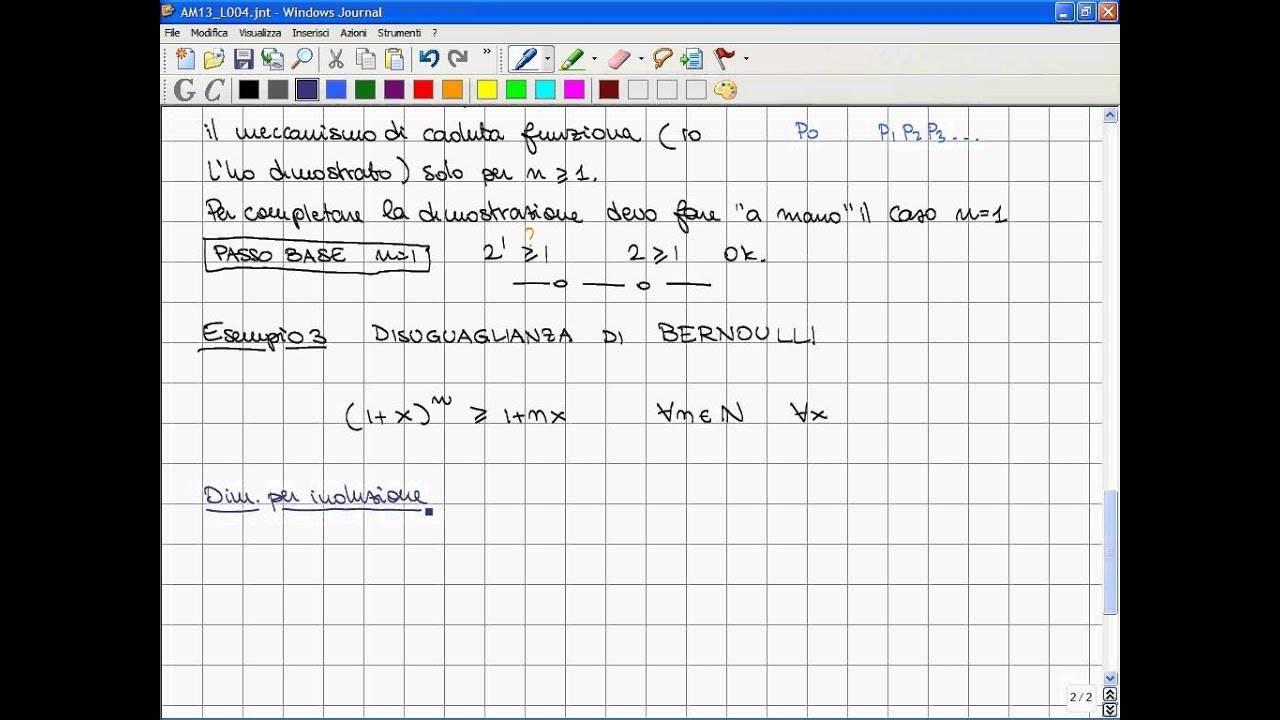 AM13_L004.jnt - Windows Journal
File Modifica Visualizza Inserisci Azioni Strumenti ?
il meccanismo di caduta funziona (io P0 P1 P2 P3 ...
l'ho dimostrato) solo per n ≥ 1.
Per completare la dimostrazione devo fare "a mano" il caso n=1
PASSO BASE n=1 2¹ ≥? 1 2 ≥ 1 OK.
Esempio 3 DISUGUAGLIANZA DI BERNOULLI
(1+x)ⁿ ≥ 1+nx ∀n∈N ∀x
Dim. per induzione
2/2